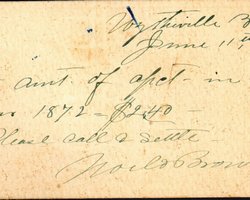 Wytheville
June 11th
amt. of acct - in
1872 - $2.40 -
Please call & settle -